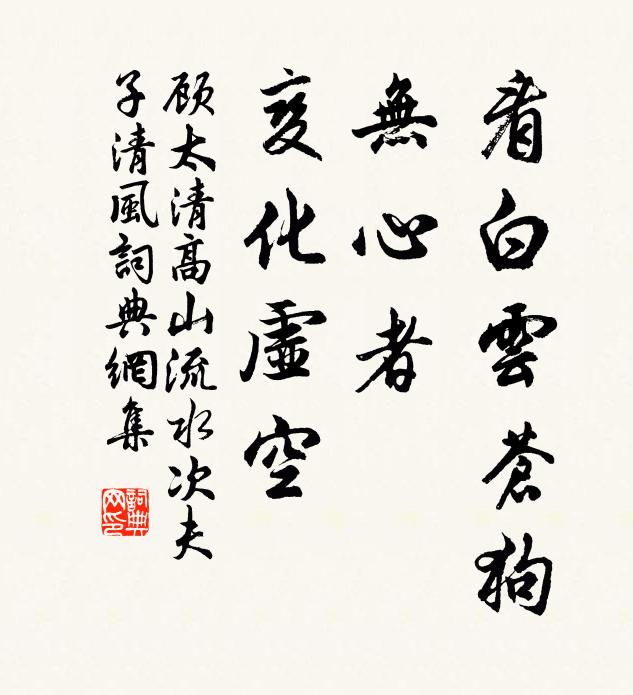 看白雲蒼狗
無心者
變化虛空
顾太清高山流水次夫
子清風詞典網集
詞典网印